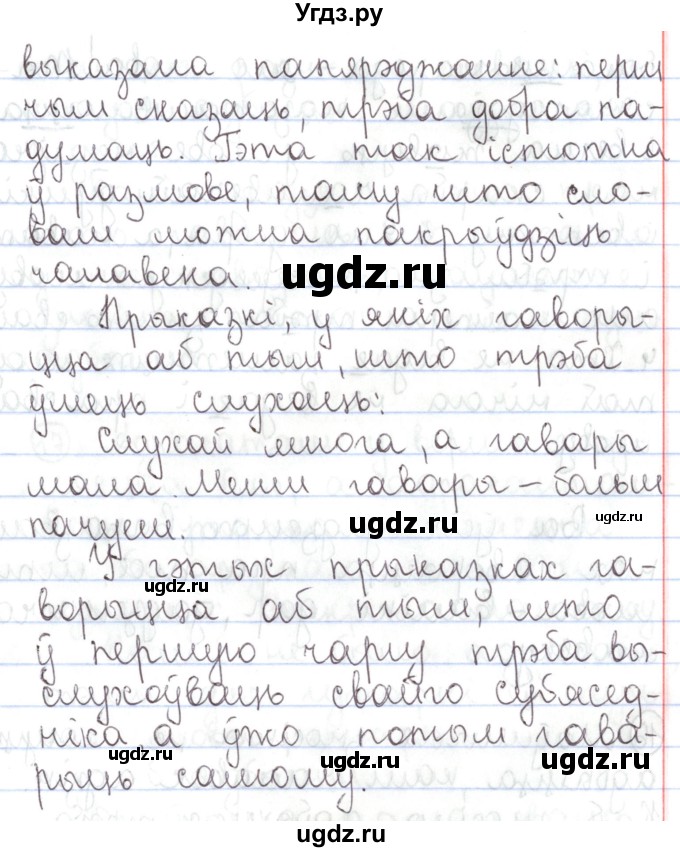 Угдз.ру
выказана папярэджанне: перш
чым сказаць, трэба добра па-
думаць. Гэта так істотна
ў размове, таму што сло-
вам можна пакрыўдзіць
чалавека.
ugdz.ru
Прыказкі, у якіх гаворы-
цца аб тым, што трэба
ўмець слухаць:
Слухай многа, а гавары
мала. Менш гавары – больш
ugdz.ru
ugdz.ru
пачуеш.
У гэтых прыказках га-
ugdz.ru
ворыцца аб тым, што
ў першую чаргу трэба вы-
слухоўваць свайго субясед-
ніка а ўжо потым гава-
ugdz.ru
ugdz.ru
ugdz.ru
рыць самому.
ugdz.ru